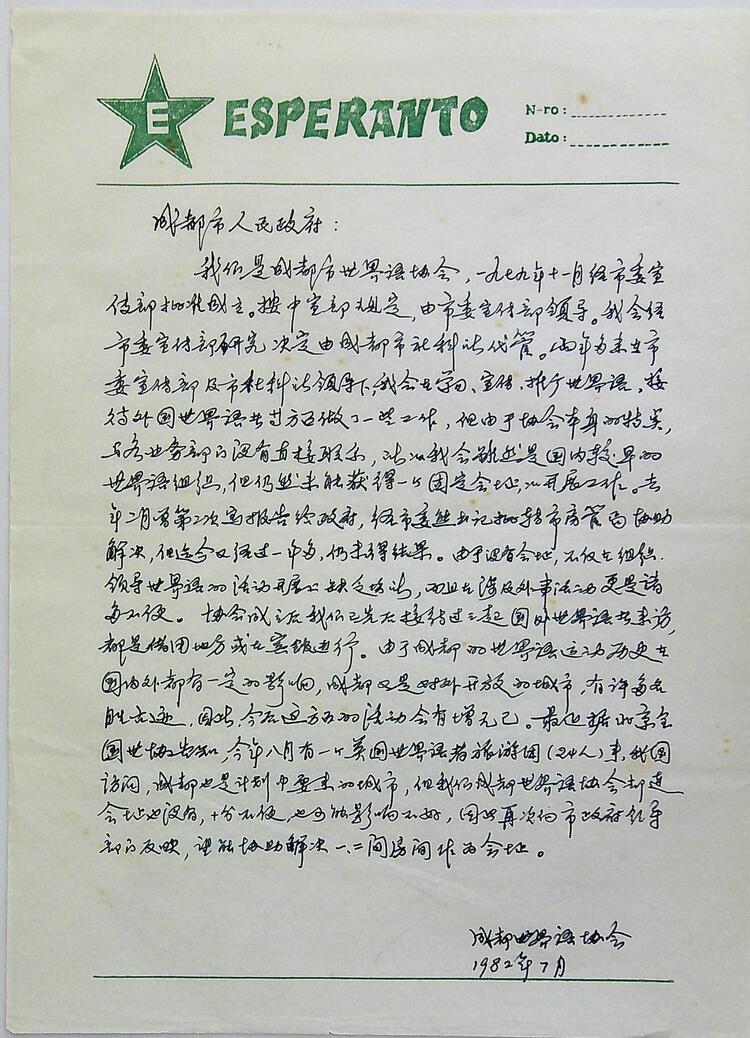 E ESPERANTO
N-ro:
Dato:
成都市人民政府：
我们是成都市世界语协会，一九七九年十一月经市委宣
传部批准成立。按中宣部规定，由市委宣传部领导。我会经
市委宣传部研究决定由成都市社科院代管。两年多来在市
委宣传部及市社科院领导下，我会在学习、宣传、推广世界语，接
待外国世界语者等方面做了一些工作，但由于协会本身的特点，
与各业务部门没有直接联系，所以我会虽然是国内较早的
世界语组织，但仍然未能获得一个固定会址，以开展工作。去
年二月曾第二次写报告给政府，经市委熊书记批转市房管局协助
解决，但迄今又经过一年多，仍未得结果。由于没有会址，不仅在组织、
领导世界语的活动开展上缺乏场所，而且在涉及外事活动更是诸
多不便。协会成立后我们已先后接待过三起国外世界语者来访，
都是借用地方或在宾馆进行。由于成都的世界语运动历史在
国内外都有一定的影响，成都又是对外开放的城市，有许多名
胜古迹，因此，今后这方面的活动会有增无已。最近据北京全
国世协告知，今年八月有一个英国世界语者旅游团（24人）来我国
访问，成都也是计划中要来的城市，但我们成都世界语协会却连
会址也没有，十分不便，也可能影响不好，因此再次向市政府领导
部门反映，望能协助解决一、二间房间作为会址。
成都世界语协会
1982年7月